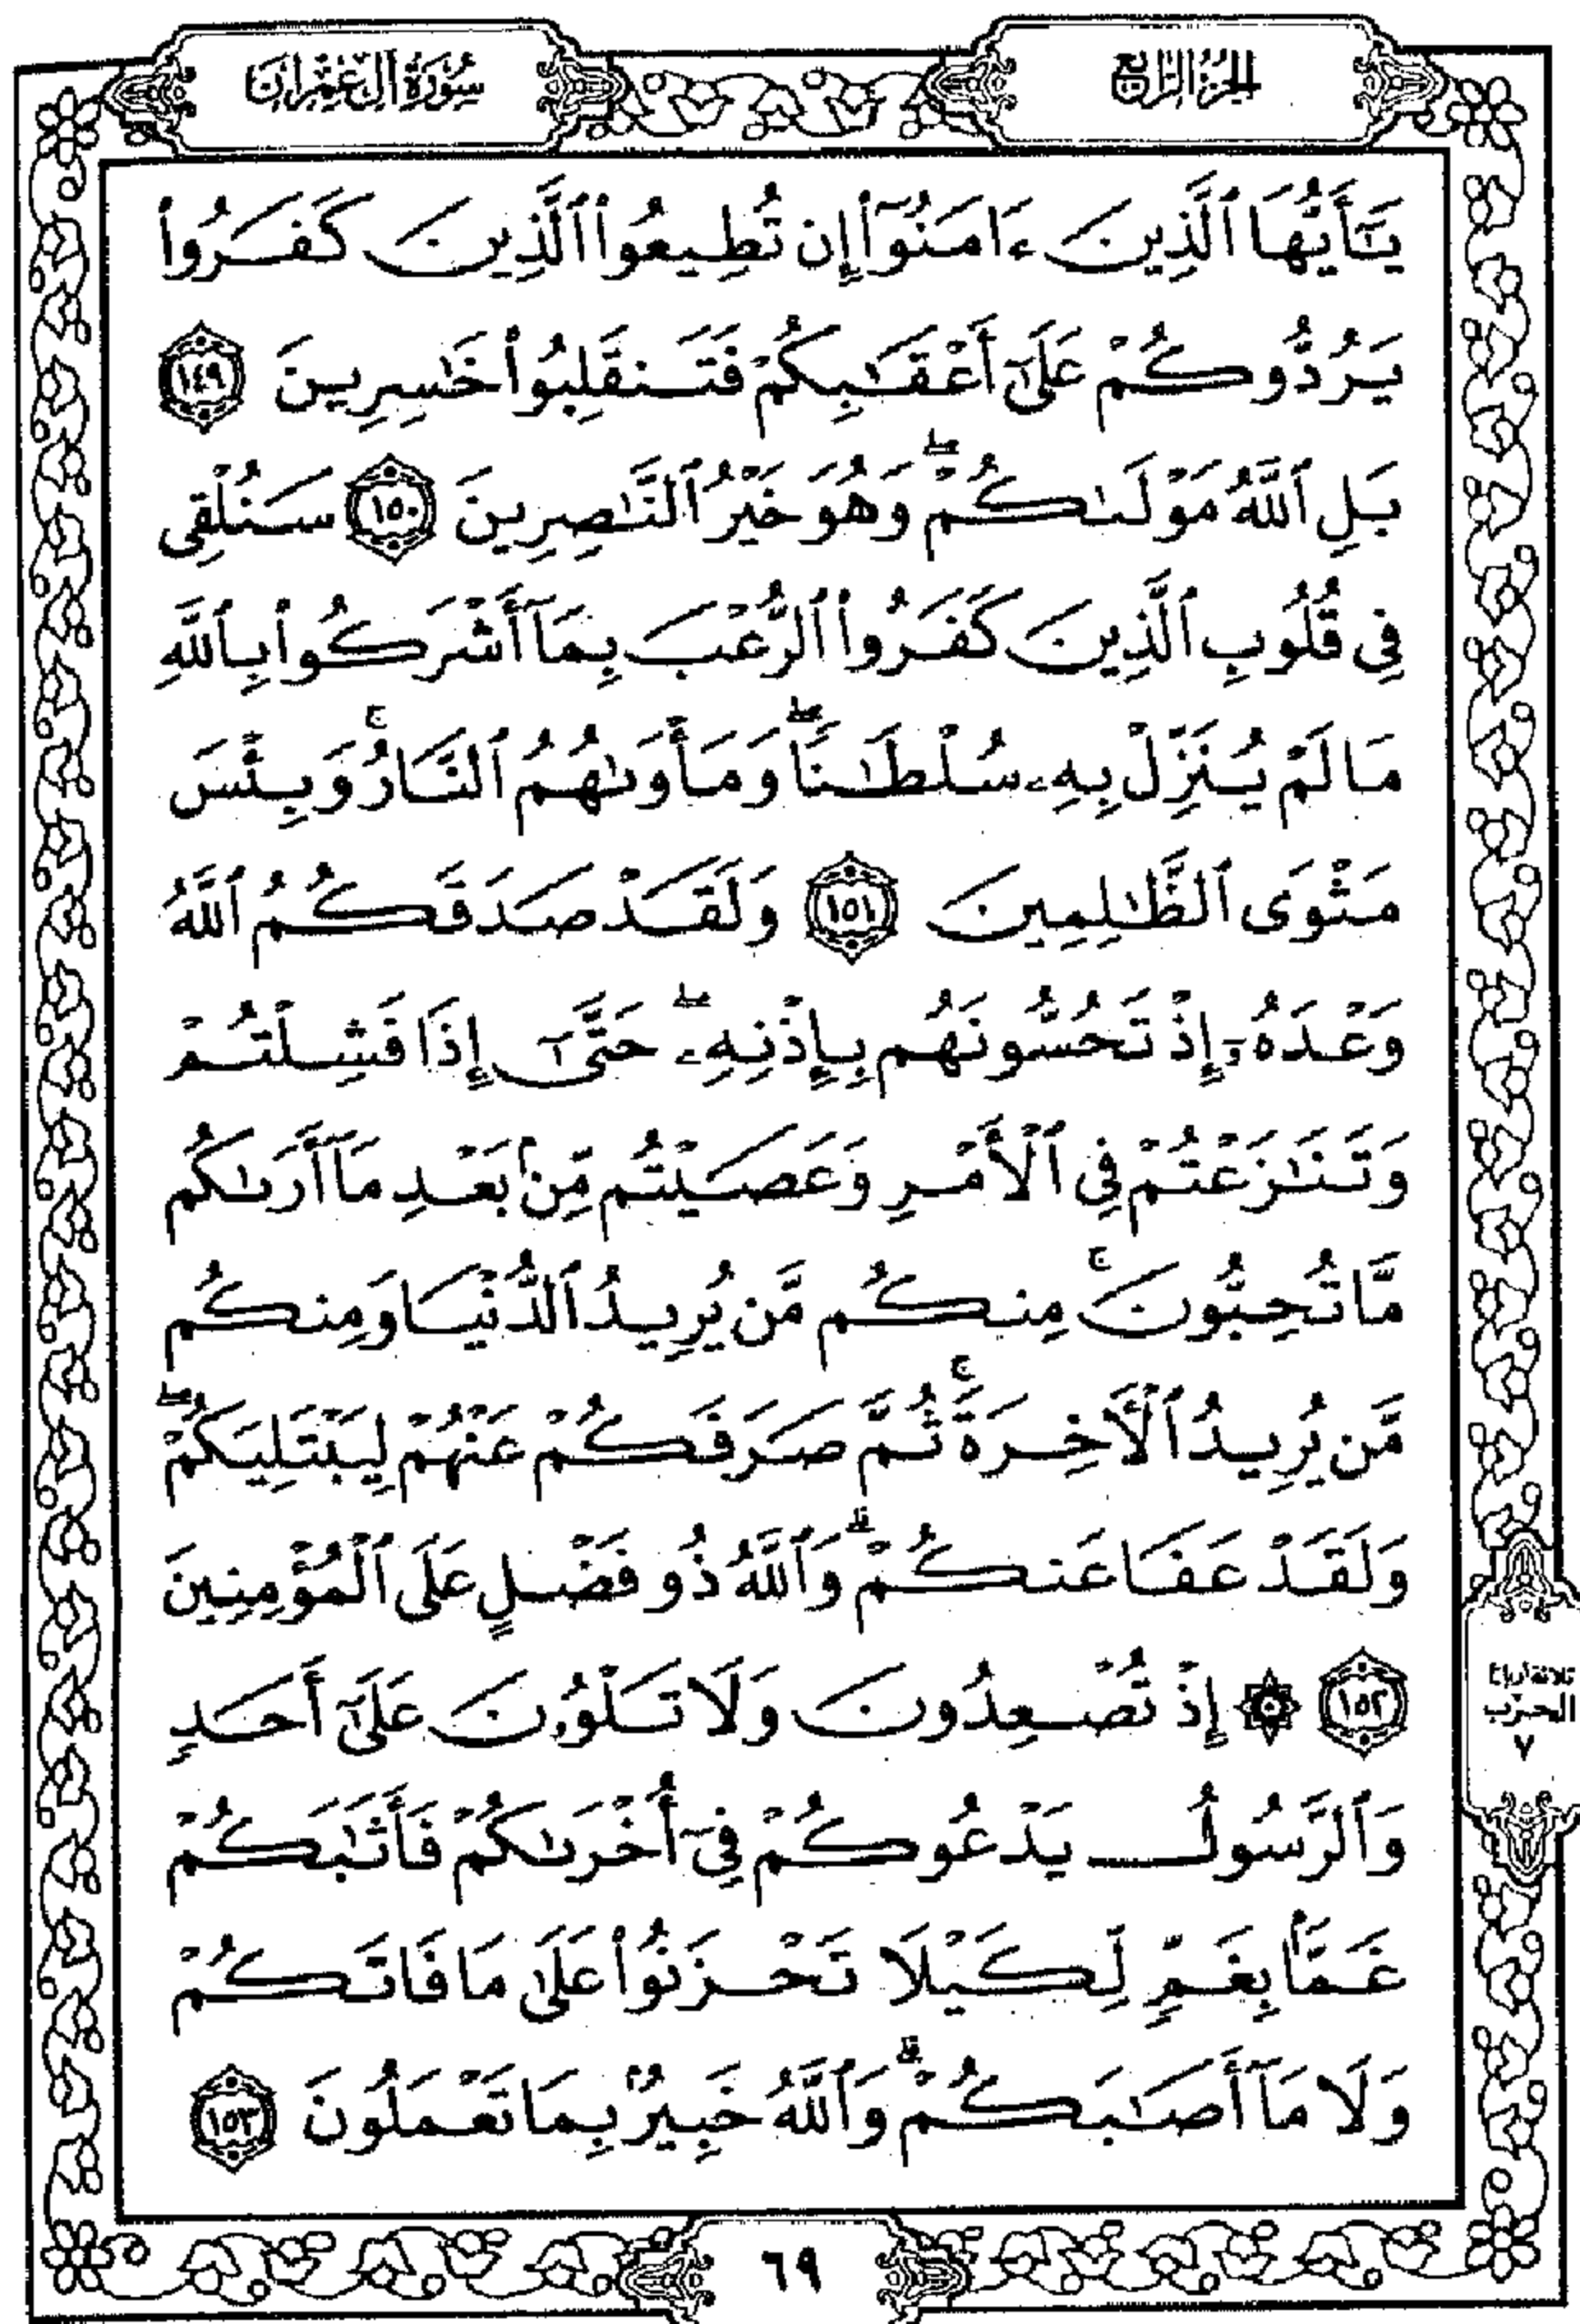 الجزء الرابع
سورة آل عمران
يَـٰٓأَيُّهَا ٱلَّذِينَ ءَامَنُوٓا۟ إِن تُطِيعُوا۟ ٱلَّذِينَ كَفَرُوا۟
يَرُدُّوكُمْ عَلَىٰٓ أَعْقَـٰبِكُمْ فَتَنقَلِبُوا۟ خَـٰسِرِينَ ١٤٩
بَلِ ٱللَّهُ مَوْلَىٰكُمْ ۖ وَهُوَ خَيْرُ ٱلنَّـٰصِرِينَ ١٥٠ سَنُلْقِى
فِى قُلُوبِ ٱلَّذِينَ كَفَرُوا۟ ٱلرُّعْبَ بِمَآ أَشْرَكُوا۟ بِٱللَّهِ
مَا لَمْ يُنَزِّلْ بِهِۦ سُلْطَـٰنًا ۖ وَمَأْوَىٰهُمُ ٱلنَّارُ ۚ وَبِئْسَ
مَثْوَى ٱلظَّـٰلِمِينَ ١٥١ وَلَقَدْ صَدَقَكُمُ ٱللَّهُ
وَعْدَهُۥٓ إِذْ تَحُسُّونَهُم بِإِذْنِهِۦ ۖ حَتَّىٰٓ إِذَا فَشِلْتُمْ
وَتَنَـٰزَعْتُمْ فِى ٱلْأَمْرِ وَعَصَيْتُم مِّنۢ بَعْدِ مَآ أَرَىٰكُم
مَّا تُحِبُّونَ ۚ مِنكُم مَّن يُرِيدُ ٱلدُّنْيَا وَمِنكُم
مَّن يُرِيدُ ٱلْـَٔاخِرَةَ ۚ ثُمَّ صَرَفَكُمْ عَنْهُمْ لِيَبْتَلِيَكُمْ ۖ
وَلَقَدْ عَفَا عَنكُمْ ۗ وَٱللَّهُ ذُو فَضْلٍ عَلَى ٱلْمُؤْمِنِينَ
١٥٢ ۞ إِذْ تُصْعِدُونَ وَلَا تَلْوُۥنَ عَلَىٰٓ أَحَدٍ
وَٱلرَّسُولُ يَدْعُوكُمْ فِىٓ أُخْرَىٰكُمْ فَأَثَـٰبَكُمْ
غَمًّۢا بِغَمٍّ لِّكَيْلَا تَحْزَنُوا۟ عَلَىٰ مَا فَاتَكُمْ
وَلَا مَآ أَصَـٰبَكُمْ ۗ وَٱللَّهُ خَبِيرٌۢ بِمَا تَعْمَلُونَ ١٥٣
ثلاثة أرباع
الحزب
٧
٦٩